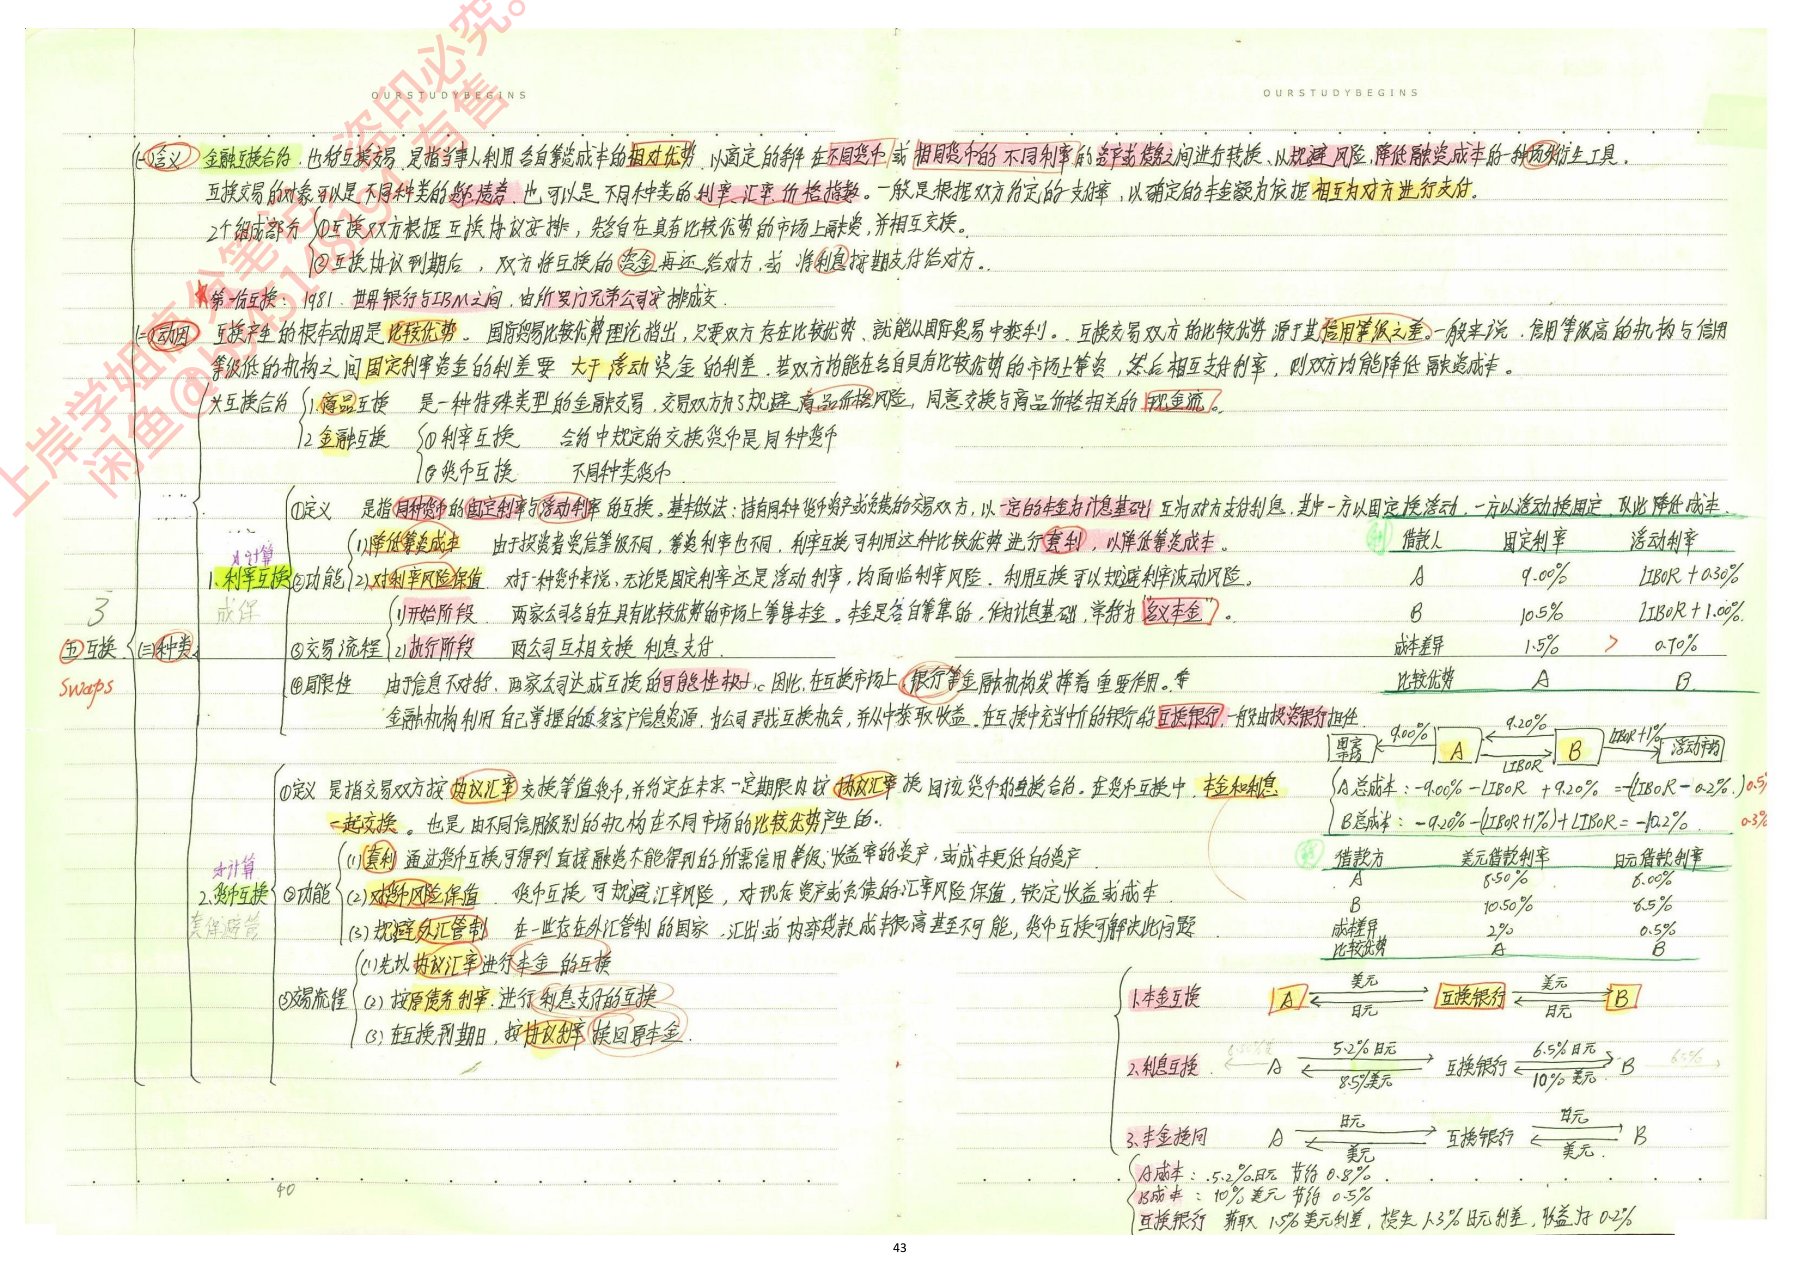 OURSTUDYBEGINS
OURSTUDYBEGINS
(一)含义 金融互换合约,也称互换交易,是指当事人利用各自筹资成本的相对优势,以商定的条件在不同货币或相同货币的不同利率的资产或债务之间进行转换,以规避风险,降低融资成本的一种场外衍生工具。
互换交易的对象可以是不同种类的货币、债券,也可以是不同种类的利率、汇率、价格指数。一般是根据双方约定的支付率,以确定的本金额为依据相互为对方进行支付。
2个组成部分 ①互换双方根据互换协议安排,先各自在具有比较优势的市场上融资,并相互交换。
②互换协议到期后,双方将互换的资金再还给对方,或将利息按期支付给对方。
★第一份互换:1981.世界银行与IBM之间,由所罗门兄弟公司安排成交.
(二)动因 互换产生的根本动因是比较优势。国际贸易比较优势理论指出,只要双方存在比较优势、就能从国际贸易中获利。互换交易双方的比较优势源于其信用等级之差。一般来说,信用等级高的机构与信用
等级低的机构之间固定利率资金的利差要大于浮动资金的利差.若双方均能在各自具有比较优势的市场上筹资,然后相互支付利率,则双方均能降低融资成本。
互换合约 1.商品互换 是一种特殊类型的金融交易,交易双方为了规避商品价格风险,同意交换与商品价格相关的现金流。
2.金融互换 ①利率互换 合约中规定的交换货币是同种货币
②货币互换 不同种类货币
3
五 互换
swaps
(三)种类
小计算
1.利率互换
成保
①定义 是指同种货币的固定利率与浮动利率的互换。基本做法:持有同种货币资产或负债的交易双方,以一定的本金为计息基础,互为对方支付利息,其中一方以固定换浮动,一方以浮动换固定,以此降低成本.
②功能 (1)降低筹资成本 由于投资者资信等级不同,筹资利率也不同,利率互换可利用这种比较优势进行套利,以降低筹资成本。
(2)对利率风险保值 对于一种货币来说,无论是固定利率还是浮动利率,均面临利率风险.利用互换可以规避利率波动风险。
③交易流程 (1)开始阶段 两家公司各自在具有比较优势的市场上筹集本金。本金是各自筹集的,作为计息基础,常称为"名义本金"。
(2)执行阶段 两公司互相交换利息支付.
④局限性 由于信息不对称,两家公司达成互换的可能性极小。因此,在互换市场上,银行等金融机构发挥着重要作用。
金融机构利用自己掌握的众多客户信息资源,为公司寻找互换机会,并从中获取收益。在互换中充当中介的银行称互换银行,一般由投资银行担任.
例 借款人 固定利率 浮动利率
A 9.00% LIBOR+0.30%
B 10.5% LIBOR+1.00%
成本差异 1.5% > 0.70%
比较优势 A B
固定市场 9.00% A 9.20% LIBOR B LIBOR+1% 浮动市场
A总成本:-9.00%-LIBOR+9.20%=-(LIBOR-0.2%) 0.5%
B总成本:-9.20%-(LIBOR+1%)+LIBOR=-10.2%. 0.3%
小计算
2.货币互换
套保避管
①定义 是指交易双方按协议汇率交换等值货币,并约定在未来一定期限内按协议汇率换回该货币的互换合约。在货币互换中,本金和利息
一起交换。也是由不同信用级别的机构在不同市场的比较优势产生的.
②功能 (1)套利 通过货币互换可得到直接融资不能得到的所需信用等级、收益率的资产,或成本更低的资产.
(2)对货币风险保值 货币互换可规避汇率风险,对现存资产或负债的汇率风险保值,锁定收益或成本.
(3)规避外汇管制 在一些存在外汇管制的国家,汇出或内部贷款成本很高甚至不可能,货币互换可解决此问题
③交易流程 (1)先以协议汇率进行本金的互换
(2)按原债务利率.进行利息支付的互换
(3)在互换到期日,按协议利率换回原本金.
例 借款方 美元借款利率 日元借款利率
A 8.50% 6.00%
B 10.50% 6.5%
成本差异 2% 0.5%
比较优势 A B
1.本金互换 A 美元 日元 互换银行 美元 日元 B
2.利息互换 A 5.2%日元 8.5%美元 互换银行 6.5%日元 10%美元 B 6.5%
3.本金换回 A 日元 美元 互换银行 日元 美元 B
A成本:5.2%日元 节约0.8%
B成本:10%美元 节约0.5%
互换银行 获取1.5%美元利差,损失1.3%日元利差,收益为0.2%
40
43